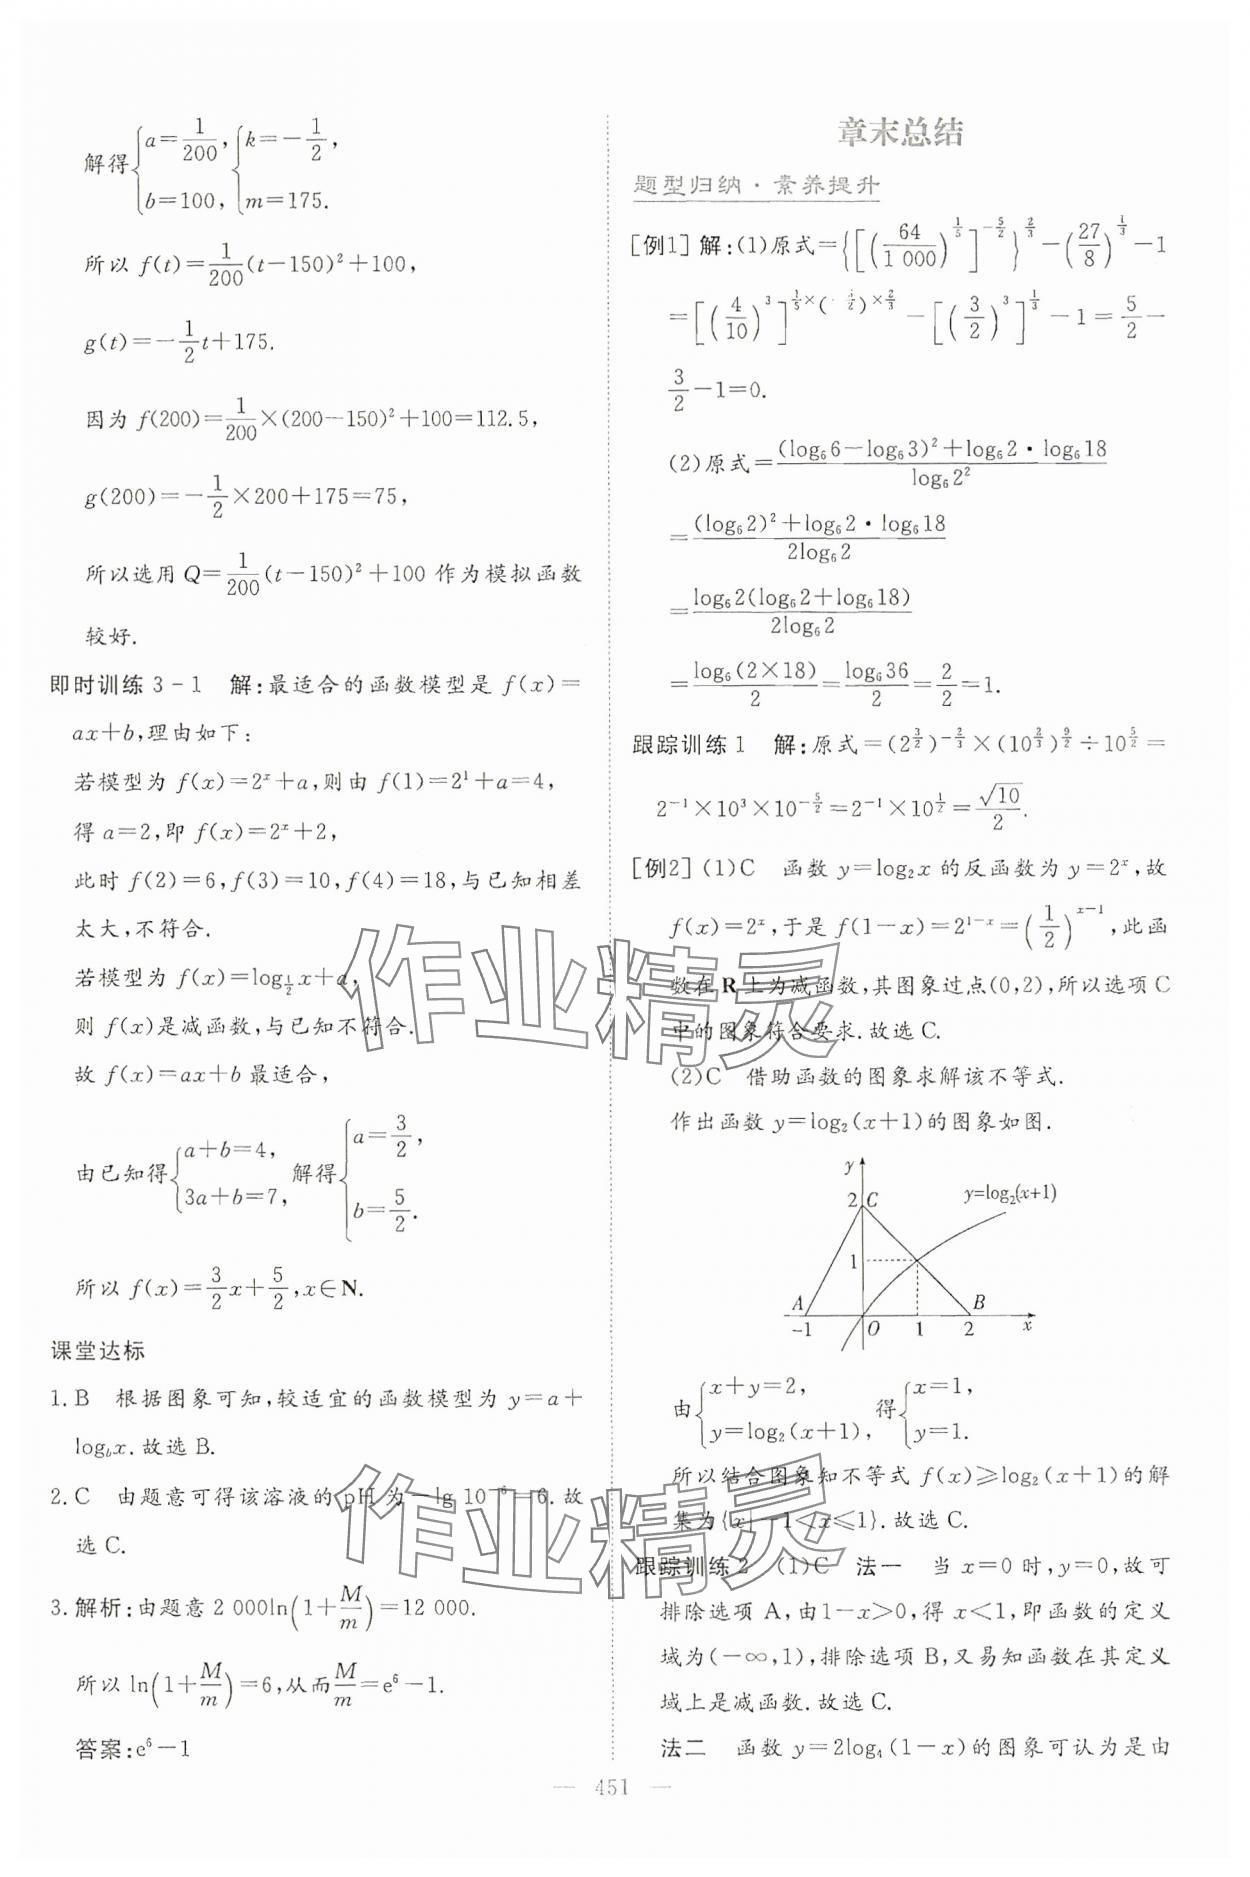 解得{a=1/200, b=100, {k=-1/2, m=175.
所以 f(t)=1/200(t-150)²+100,
g(t)=-1/2t+175.
因为 f(200)=1/200×(200-150)²+100=112.5,
g(200)=-1/2×200+175=75,
所以选用 Q=1/200(t-150)²+100 作为模拟函数
较好.
即时训练 3-1 解:最适合的函数模型是 f(x)=
ax+b,理由如下:
若模型为 f(x)=2ˣ+a,则由 f(1)=2¹+a=4,
得 a=2,即 f(x)=2ˣ+2,
此时 f(2)=6,f(3)=10,f(4)=18,与已知相差
太大,不符合.
若模型为 f(x)=log_{1/2}x+a,
则 f(x)是减函数,与已知不符合.
故 f(x)=ax+b 最适合,
由已知得{a+b=4, 3a+b=7, 解得{a=3/2, b=5/2.
所以 f(x)=3/2x+5/2,x∈N.
课堂达标
1.B 根据图象可知,较适宜的函数模型为 y=a+
log_b x.故选 B.
2.C 由题意可得该溶液的 pH 为-lg 10⁻⁶=6.故
选 C.
3.解析:由题意 2 000ln(1+M/m)=12 000.
所以 ln(1+M/m)=6,从而M/m=e⁶-1.
答案:e⁶-1
章末总结
题型归纳·素养提升
[例1] 解:(1)原式={[(64/1 000)^{1/5}]^{-5/2}}^{2/3}-(27/8)^{1/3}-1
=[(4/10)³]^{1/5×(-5/2)×2/3}-[(3/2)³]^{1/3}-1=5/2-
3/2-1=0.
(2)原式=((log₆6-log₆3)²+log₆2·log₆18)/(log₆2²)
=((log₆2)²+log₆2·log₆18)/(2log₆2)
=(log₆2(log₆2+log₆18))/(2log₆2)
=(log₆(2×18))/2=(log₆36)/2=2/2=1.
跟踪训练1 解:原式=(2^{3/2})^{-2/3}×(10^{2/3})^{9/2}÷10^{5/2}=
2⁻¹×10³×10^{-5/2}=2⁻¹×10^{1/2}=√10/2.
[例2] (1)C 函数 y=log₂x 的反函数为 y=2ˣ,故
f(x)=2ˣ,于是 f(1-x)=2^{1-x}=(1/2)^{x-1},此函
数在 R 上为减函数,其图象过点(0,2),所以选项 C
中的图象符合要求.故选 C.
(2)C 借助函数的图象求解该不等式.
作出函数 y=log₂(x+1)的图象如图.
y
2 C y=log₂(x+1)
1
A B
-1 O 1 2 x
由{x+y=2, y=log₂(x+1), 得{x=1, y=1.
所以结合图象知不等式 f(x)≥log₂(x+1)的解
集为{x|-1<x≤1}.故选 C.
跟踪训练2 (1)C 法一 当 x=0 时,y=0,故可
排除选项 A,由1-x>0,得 x<1,即函数的定义
域为(-∞,1),排除选项 B,又易知函数在其定义
域上是减函数.故选 C.
法二 函数 y=2log₄(1-x)的图象可认为是由
— 451 —
作业精灵
作业精灵